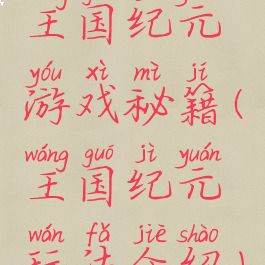 王国纪元
yóu xì mì jí
游戏秘籍(
wáng guó jì yuán
王国纪元
wán fǎ jiè shào
玩法介绍)